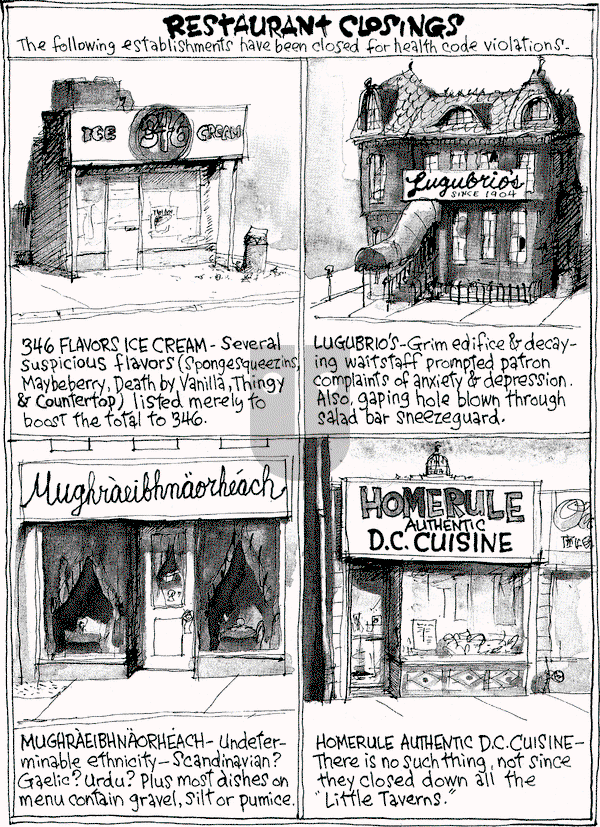 RESTAURANT CLOSINGS
The following establishments have been closed for health code violations-
ICE 346 CREAM
Lugubrio's
SINCE 1904
346 FLAVORS ICE CREAM - Several
suspicious flavors (Spongesqueezins,
Maybeberry, Death by Vanilla, Thingy
& Countertop) listed merely to
boost the total to 346.
LUGUBRIO'S-Grim edifice & decay-
ing waitstaff prompted patron
complaints of anxiety & depression.
Also, gaping hole blown through
salad bar sneezeguard.
Mughràeibhnäorhéach
HOMERULE
AUTHENTIC
D.C. CUISINE
MUGHRÀEIBHNÄORHÉACH- Undeter-
minable ethnicity- Scandinavian?
Gaelic? Urdu? Plus most dishes on
menu contain gravel, silt or pumice.
HOMERULE AUTHENTIC D.C. CUISINE-
There is no such thing, not since
they closed down all the
"Little Taverns."